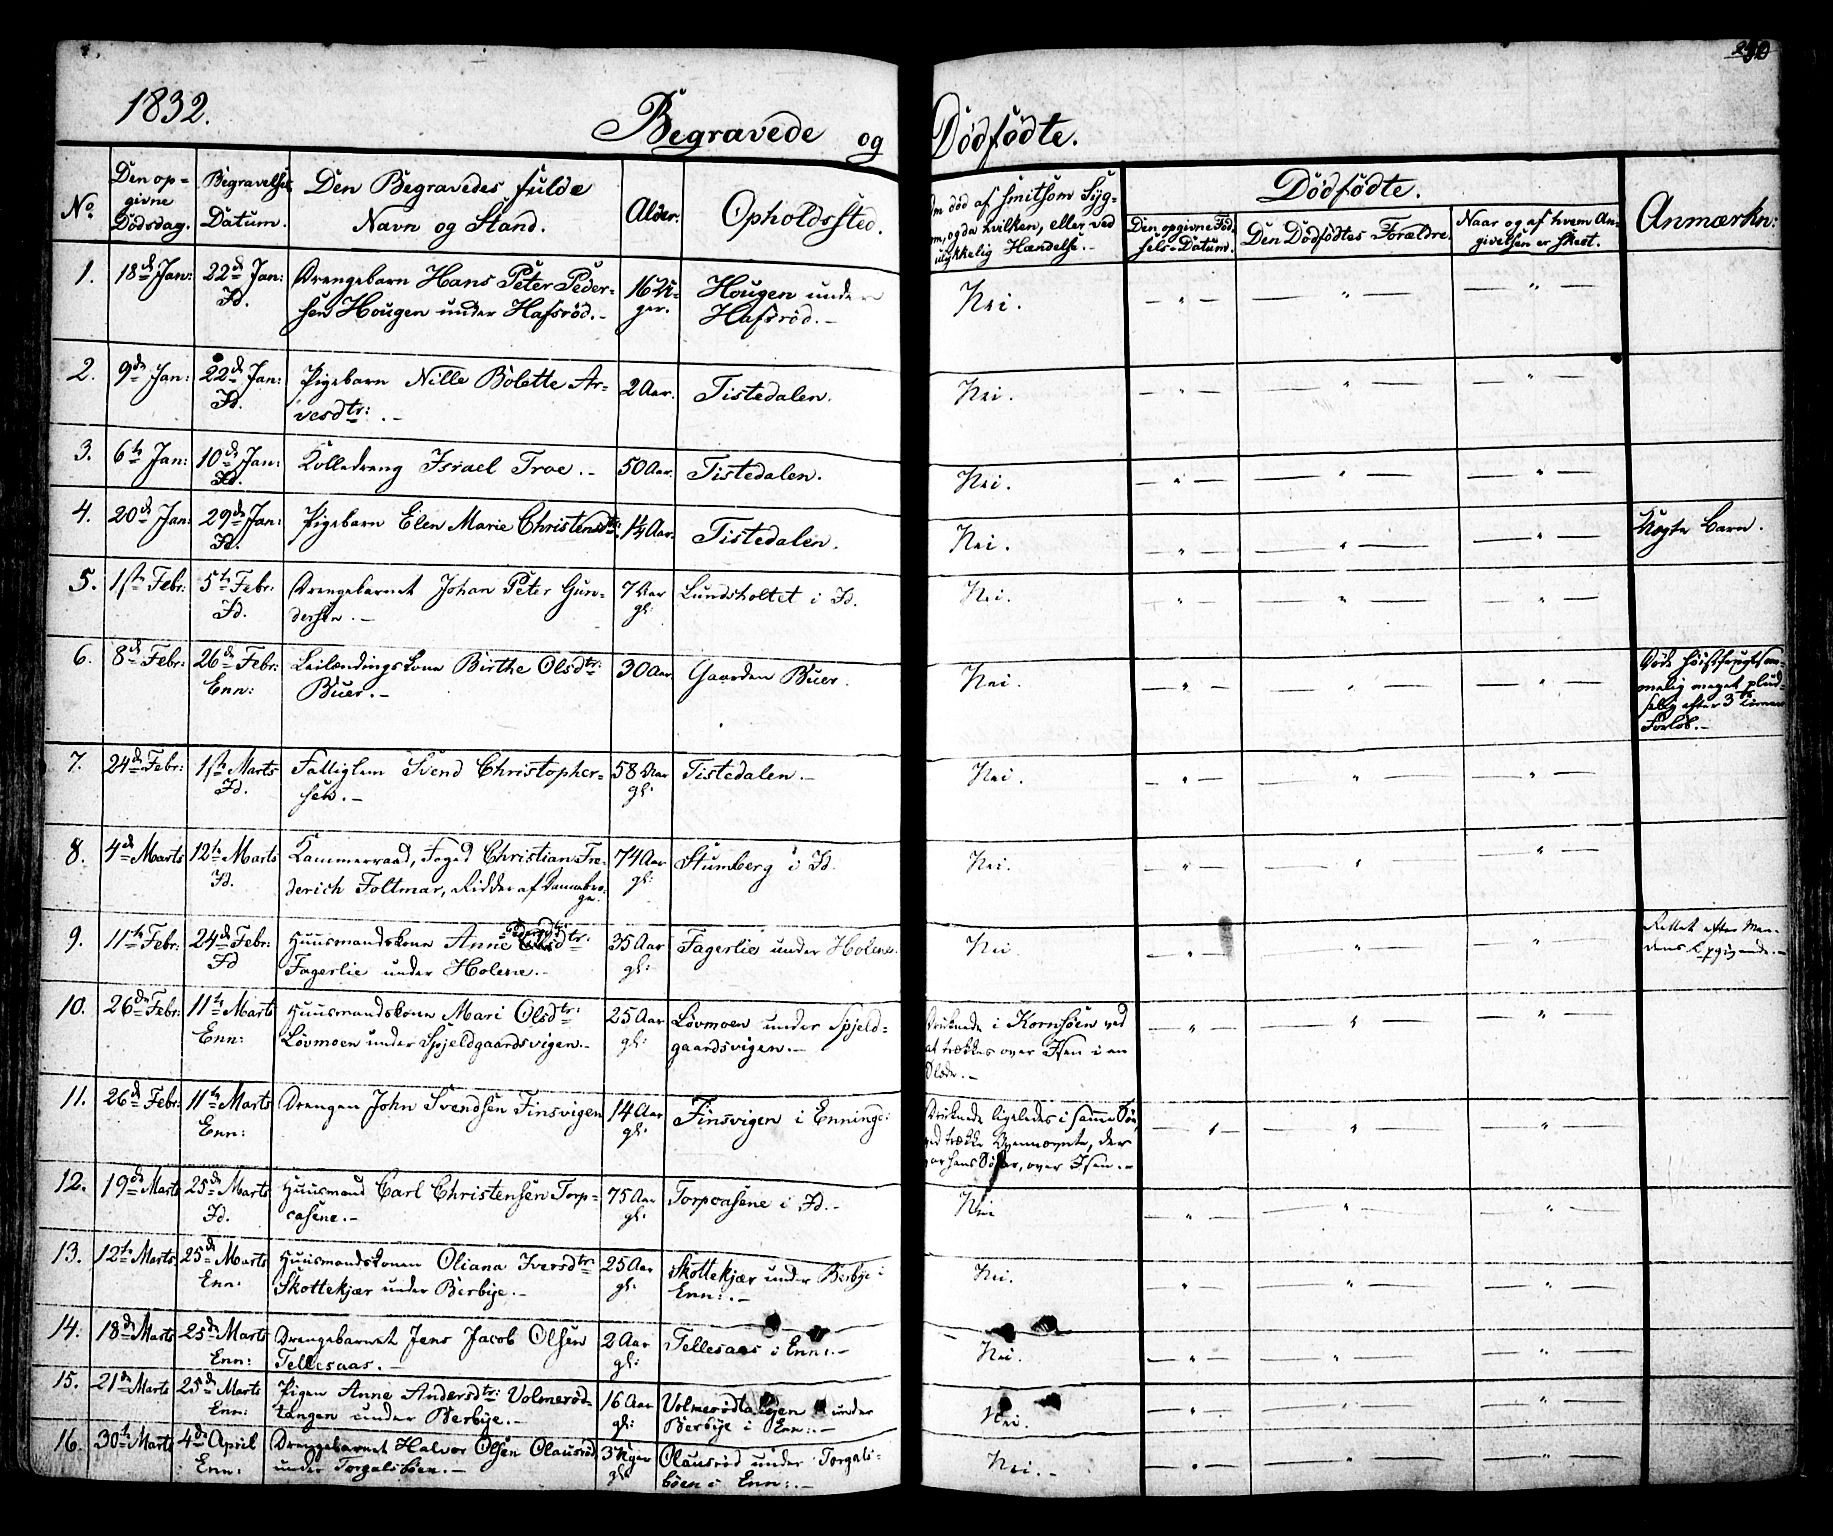 1832.
Begravede og Dödfödte.
No.
Den op-
givne
Dödsdag.
Begravelses
Datum.
Den Begravedes fulde
Navn og Stand.
Alder.
Opholdssted.
Om död af smitsom Syg-
om, og da hvilken, eller ved
ulykkelig Hændelse.-
Dödfödte.
Den opgivne Föd-
sels-Datum.
Den Dödfödtes Forældre.
Naar og af hvem An-
givelsen er skeet.
Anmærkn:
1. 18de Jan: 22de Jan: Drengebarn Hans Peter Peder- 16 U- Hougen under Nei.
Id. sen Hougen under Hafsröd.- ger. Hafsröd.-
2. 9de Jan: 22de Jan: Pigebarn Nille Bolette Ar- 2 Aar. Tistedalen. Nei.
Id. vesdtr: .-
3. 6te Jan: 10de Jan: Kulledreng Israel Troe.- 50 Aar. Tistedalen. Nei.
Id.
4. 20de Jan: 29de Jan: Pigebarn Elen Marie Christensdtr: 1¼ Aar. Tistedalen. Nei. Uægte Barn.
Id.
5. 1ste Febr: 5te Febr: Drengebarnet Johan Peter Gun- 7 Aar Lundsholtet i Id. Nei.
Id. dersen.- gl:
6. 8de Febr: 26de Febr: Leilændingskone Birthe Olsdtr: 30 Aar Gaarden Buer. Nei. Döde höist
Enn: Buer.- melig meget plud-
selig efter 3 Timers
Forlöb.-
7. 24de Febr: 1ste Marts Fattiglem Svend Christopher- 58 Aar Tistedalen.- Nei.
Id. sen.- gl:
8. 4de Marts 12te Marts Kammerraad, Foged Christian Fre- 74 Aar Stumberg i Id. Nei.
Id. derich Foltmar, Ridder af Dannebro- gl:
ge.
9. 11te Febr: 24de Febr: Huusmandskone Anne Olsdtr: 35 Aar Fagerlie under Holene. Nei Rettet efter Man-
Id Fagerlie under Holene.- gl: dens Opgivende.-
10. 26de Febr: 11te Marts Huusmandskone Mari Olsdtr: 25 Aar Lövmoen under Spjeld- Druknede i Kornsöen ved
Enn: Lövmoen under Spjeldgaardsvigen.- gl: gaardsvigen.- at trækkes over Isen i en
Slæde.-
11. 26de Febr: 11te Marts Drengen John Svendsen Finsvigen 14 Aar Finsvigen i Enninge: Druknede ligeledes i samme Söe,
Enn: gl: ved trække Ovennævnte, der
var hans Söster, over Isen.-
12. 19de Marts 25de Marts Huusmand Carl Christensen Torp- 75 Aar Torpcasene i Id.- Nei
Id. casene.- gl:
13. 12te Marts. 25de Marts Huusmandskonen Oliana Iversdtr: 25 Aar Skottekjær under Berbye i Nei.
Enn: Skottekjær under Berbye.- gl: Enn:.-
14. 18de Marts 25de Marts Drengebarnet Jens Jacob Olsen 2 Aar Tellesaas i Enn:.- Nei.
Enn: Tellesaas.- gl:
15. 21de Marts 25de Marts Pigen Anne Andersdtr: Volmeröd- 16 Aar under Nei.
Enn: tangen under Berbye.- gl: Berbye i Enn:.-
16. 30te Marts 4de April Drengebarnet Halvor Olsen Olausröd 3 Uger Olausröd under Torgals- Nei.-
Enn: under Torgalsböen.- gl: böen i Enn:.-